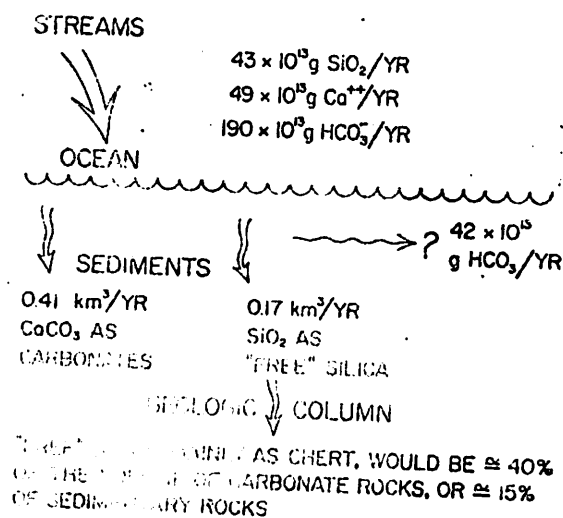 STREAMS
43 × 10¹³g SiO₂/YR
49 × 10¹³g Ca⁺⁺/YR
190 × 10¹³g HCO₃⁻/YR
OCEAN
? 42 × 10¹³
g HCO₃/YR
SEDIMENTS
0.41 km³/YR
CaCO₃ AS
CARBONATES
0.17 km³/YR
SiO₂ AS
"FREE" SILICA
GEOLOGIC COLUMN
"FREE" AS CHERT, WOULD BE ≅ 40%
OF THE VOLUME OF CARBONATE ROCKS, OR ≅ 15%
OF SEDIMENTARY ROCKS